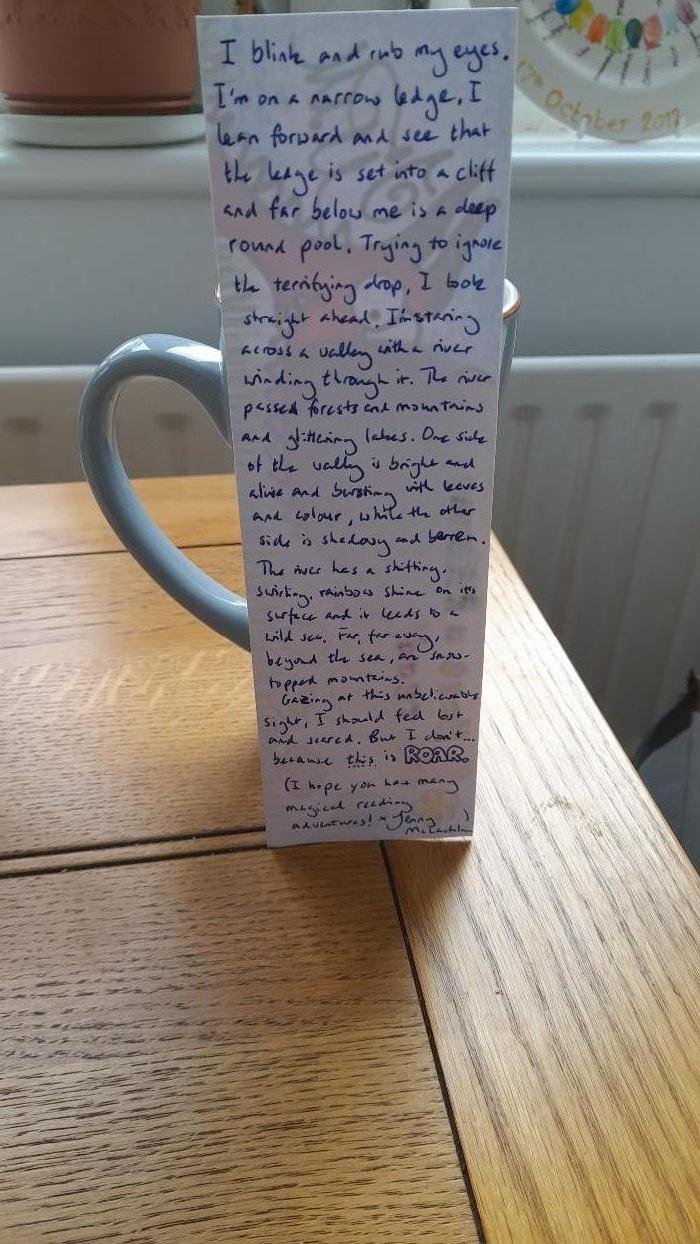 I blink and rub my eyes.
I'm on a narrow ledge. I
lean forward and see that
the ledge is set into a cliff
and far below me is a deep
round pool. Trying to ignore
the terrifying drop, I look
straight ahead. I'm staring
across a valley with a river
winding through it. The river
passed forests and mountains
and glittering lakes. One side
of the valley is bright and
alive and bursting with leaves
and colour, while the other
side is shadowy and barren.
The river has a shifting,
swirling, rainbow shine on its
surface and it leads to a
wild sea. Far, far away,
beyond the sea, are snow-
topped mountains.
Gazing at this unbelievable
sight, I should feel lost
and scared. But I don't...
because this is ROAR.
(I hope you have many
magical reading
adventures! x Jenny )
McLachlan
17th October 2017